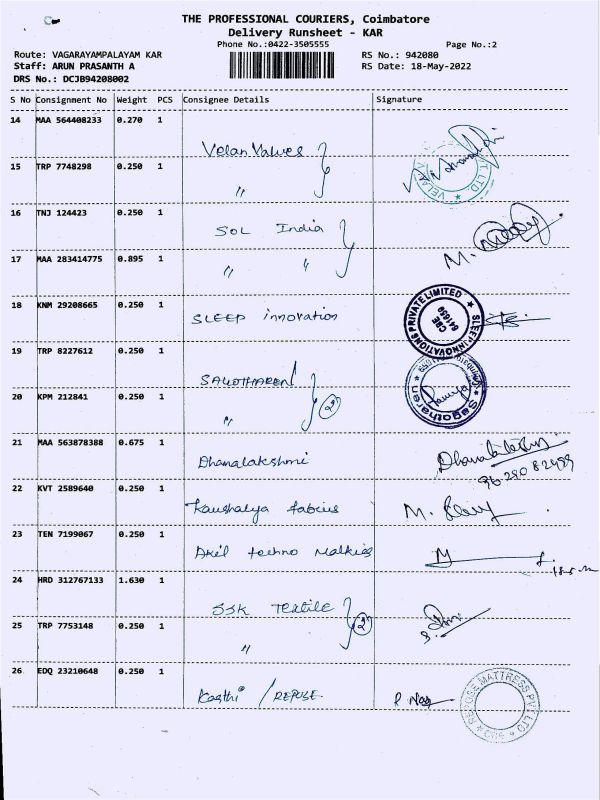 THE PROFESSIONAL COURIERS, Coimbatore
Delivery Runsheet - KAR
Phone No.:0422-3505555
Page No.:2
Route: VAGARAYAMPALAYAM KAR
RS No.: 942080
Staff: ARUN PRASANTH A
RS Date: 18-May-2022
DRS No.: DCJB94208002
S No Consignment No Weight PCS Consignee Details Signature
14 MAA 564408233 0.270 1
Velan Valves
15 TRP 7748298 0.250 1
"
16 TNJ 124423 0.250 1
SOL India
17 MAA 283414775 0.895 1
" "
M.
18 KNM 29208665 0.250 1
SLEEP innovation
SLEEP INNOVATIONS PRIVATE LIMITED
CBE
641659
19 TRP 8227612 0.250 1
SAGOTHAREN
20 KPM 212841 0.250 1
" 2
Sagotharen
21 MAA 563878388 0.675 1
Dhanalakshmi Dhanalakshmi
22 KVT 2589640 0.250 1
Kaushalya fabrics M.
23 TEN 7199067 0.250 1
Akil techno
24 HRD 312767133 1.630 1
SSK TEXTILE
25 TRP 7753148 0.250 1
" 2
26 EDQ 23210648 0.250 1
Karthi / REPOSE.
REPOSE MATTRESS PVT LTD